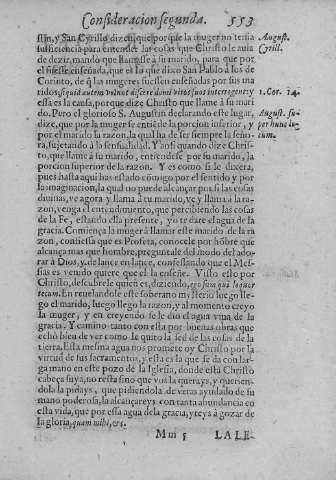 Consideracion segunda. 553
stin, y San Cyrillo dizen, que porque la muger no tenia
suficiencia para entender las cosas que Christo le auia
de dezir, mandò que llamasse a su marido, para que por
el fuesse enseñada, que es lo que dixo San Pablo à los de
Corinto, de q̃ las mugeres fuessen enseñadas por sus ma
ridos, siquid autem volunt discere domi viros suos interrogent: y
essa es la causa, porque dize Christo que llame â su mari
do. Pero el glorioso S. Augustin declarando este lugar,
dize, que por la muger se entiẽde la porcion inferior, y
por el marido la razon, la qual ha de ser siempre la seño
ra, sujetando à la sensualidad. Y ansi quando dize Chris-
to, que llame â su marido, entiendese por su marido, la
porcion superior de la razon. Y es como si le dixera,
pues hasta aqui has estado comigo por el sentido y por
la imaginacion, la qual no puede alcançar por si las cosas
diuinas, ve agora y llama â tu marido, ve y llama â la ra-
zon, venga el entendimiento, que percibiendo las cosas
de la Fe, estando ella presente, yo te dare el agua de la
gracia. Comiença la muger â llamar este marido de la ra
zon, confiessa que es Profeta, conocele por hõbre que
alcança mas que hombre, preguntale del modo del ado-
rar â Dios, y de lance en lance, confessando que el Mes-
sias es venido quiere que el la enseñe. Visto esto por
Christo, descubrele quien es, diziendo, ego sum qui loquor
tecum. En reuelandole este soberano misterio luego lle-
go el marido, luego llego la razon, y al momento creyo
la muger, y en creyendo se le dio el agua viua de la
gracia. Y camino tanto con esta por buenas obras que
echô bien de ver como le quito la sed de las cosas de la
tierra. Esta mesma agua nos promete oy Christo por la
virtud de sus sacramentos, y esta es la que se da con lar-
ga mano en este pozo de la Iglesia, donde està Christo
cabeça suya, no resta sino que vos la querays, y querien-
dola la pidays, que pidiendola de veras ayudado de su
mano poderosa, la alcançareys con tanta abundancia en
esta vida, que por essa agua de la gracia, yteys à gozar de
la gloria, quam mihi, &c.
Mm 5 LA LE-
August.
Cyrill.
1. Cor. 14.
August. su-
per hunc lo-
cum.